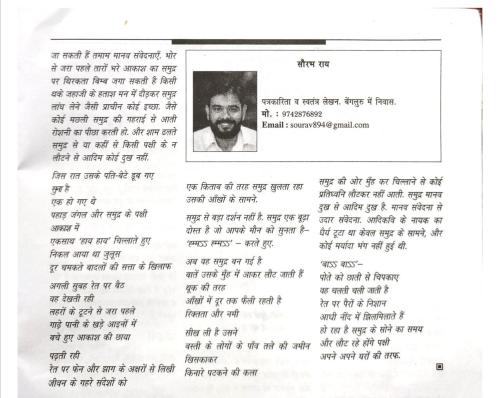 जा सकती हैं तमाम मानव संवेदनाएँ. भोर
से जरा पहले तारों भरे आकाश का समुद्र
पर थिरकता बिम्ब जगा सकती है किसी
थके जहाजी के हताश मन में दौड़कर समुद्र
लांघ लेने जैसी प्राचीन कोई इच्छा. जैसे
कोई मछली समुद्र की गहराई से आती
रोशनी का पीछा करती हो. और शाम ढलते
समुद्र से या कहीं से किसी पक्षी के न
लौटने से आदिम कोई दुख नहीं.
जिस रात उसके पति-बेटे डूब गए
सुम्न है
एक हो गए थे
पहाड़ जंगल और समुद्र के पक्षी
आकाश में
एकसाथ 'हाय हाय' चिल्लाते हुए
निकल आया था जुलूस
दूर चमकते बादलों की सत्ता के खिलाफ
अगली सुबह रेत पर बैठ
वह देखती रही
लहरों के टूटने से जरा पहले
गाढ़े पानी के खड़े आइनों में
बचे हुए आकाश की छाया
पढ़ती रही
रेत पर फेन और झाग के अक्षरों से लिखी
जीवन के गहरे संदेशों को
सौरभ राय
पत्रकारिता व स्वतंत्र लेखन. बेंगलुरु में निवास.
मो. : 9742876892
Email : sourav894@gmail.com
एक किताब की तरह समुद्र खुलता रहा
उसकी आँखों के सामने.
समुद्र से बड़ा दर्शन नहीं है. समुद्र एक बूढ़ा
दोस्त है जो आपके मौन को सुनता है–
'हम्मऽऽ हम्मऽऽ' – करते हुए.
अब वह समुद्र बन गई है
बातें उसके मुँह में आकर लौट जाती हैं
थूक की तरह
आँखों में दूर तक फैली रहती है
रिक्तता और नमी
सीख ली है उसने
बस्ती के लोगों के पाँव तले की जमीन
खिसकाकर
किनारे पटकने की कला
समुद्र की ओर मुँह कर चिल्लाने से कोई
प्रतिध्वनि लौटकर नहीं आती. समुद्र मानव
दुख से आदिम दुख है. मानव संवेदना से
उदार संवेदना. आदिकवि के नायक का
धैर्य टूटा था केवल समुद्र के सामने, और
कोई मर्यादा भंग नहीं हुई थी.
'बाऽऽ बाऽऽ'–
पोते को छाती से चिपकाए
वह चलती चली जाती है
रेत पर पैरों के निशान
आधी नींद में झिलमिलाते हैं
हो रहा है समुद्र के सोने का समय
और लौट रहे होंगे पक्षी
अपने अपने घरों की तरफ.